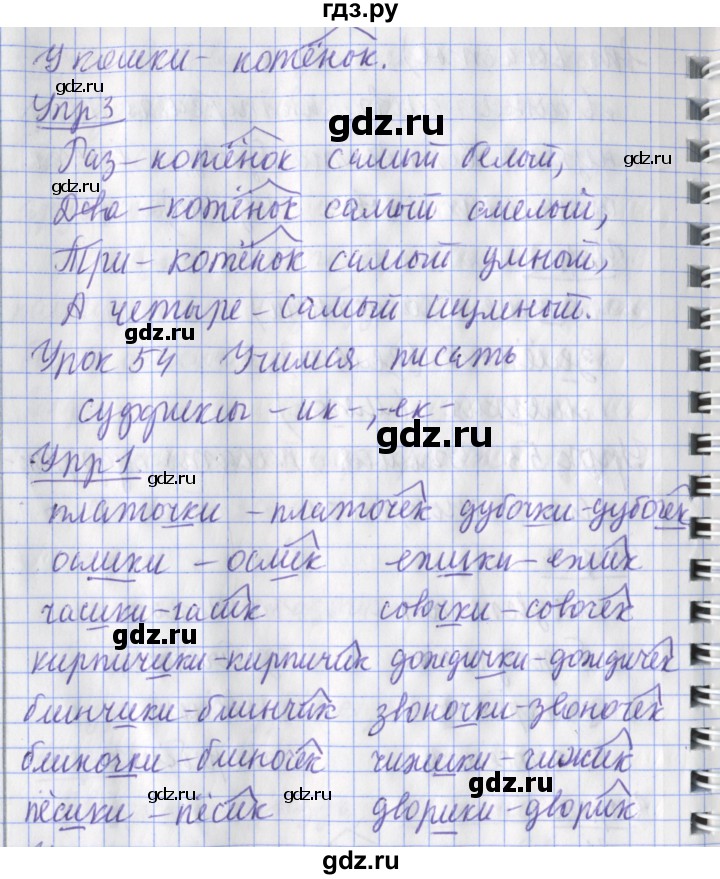 гдз.ру
У кошки - котёнок.
gdz.ru
Упр 3
gdz.ru
Раз - котёнок самый белый,
gdz.ru
gdz.ru
Два - котёнок самый смелый,
Три - котёнок самый умный,
А четыре - самый шумный.
gdz.ru
Урок 54 Учимся писать
суффиксы -ик-, -ек-
gdz.ru
Упр 1.
gdz.ru
платочки - платочек дубочки - дубочек
gdz.ru
ослики - ослик ежики - ежик
часики - часик совочки - совочек
gdz.ru
кирпичики - кирпичик дождички - дождичек
блинчики - блинчик звоночки - звоночек
gdz.ru
блиночки - блиночек чижики - чижик
пёсики - пёсик дворики - дворик
gdz.ru
gdz.ru
gdz.ru